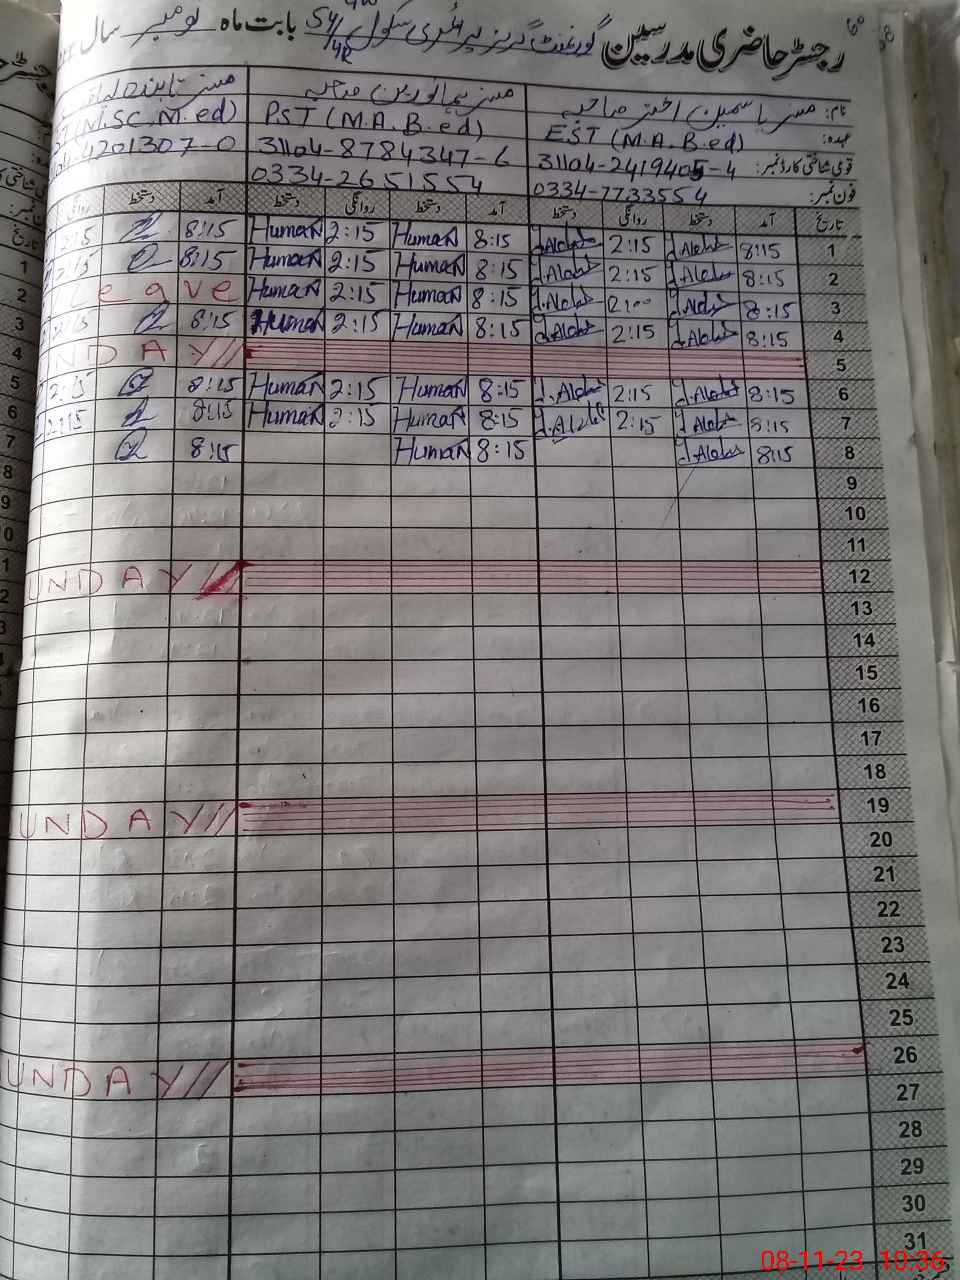 رجسٹر حاضری مدرسین گورنمنٹ گرلز پرائمری سکول 54/4R بابت ماہ نومبر سال
نام: مسز یاسمین اختر صاحبہ
عہدہ: EST (M.A.B.ed) PST (M.A.B.ed) (M.SC.M.ed)
قومی شناختی کارڈ نمبر: 31104-2419405-4 31104-8784347-6 4201307-0
فون نمبر: 0334-7733554 0334-2651554
تاریخ آمد دستخط روانگی دستخط آمد دستخط روانگی دستخط آمد دستخط
1 8:15 2:15 8:15 Human 2:15 Human 8:15 2:15
2 8:15 2:15 8:15 Human 2:15 Human 8:15 2:15
3 8:15 2:00 8:15 Human 2:15 Human Leave
4 8:15 2:15 8:15 Human 2:15 Human 8:15
5 UNDAY
6 8:15 2:15 8:15 Human 2:15 Human 8:15 2:15
7 8:15 2:15 8:15 Human 2:15 Human 8:15 2:15
8 8:15 8:15 Human 8:15
9
10
11
12 UNDAY
13
14
15
16
17
18
19 UNDAY
20
21
22
23
24
25
26 UNDAY
27
28
29
30
31
08-11-23 10:36